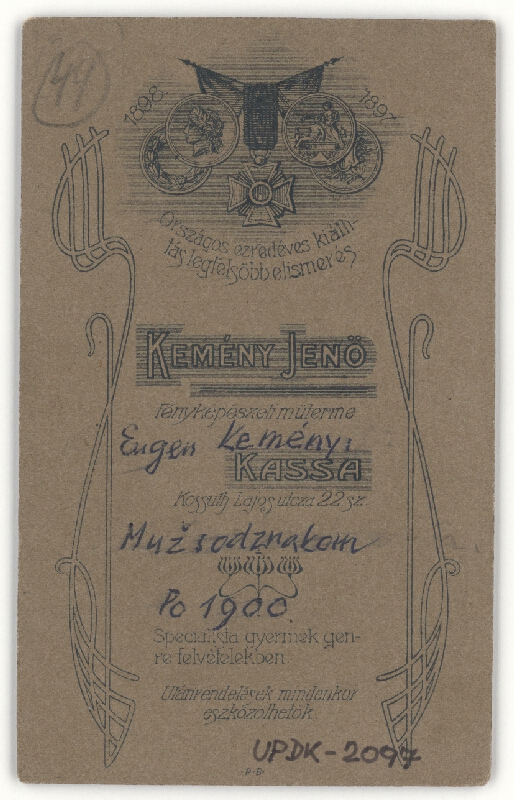 44
1898 1897
Országos ezredéves kiállí-
tás legfelsőbb elismerés
KEMÉNY JENŐ
Fényképészeti műterme
Eugen Kemény:
KASSA
Kossuth Lajos utcza 22 sz.
Muž s odznakom
Po 1900.
Specialista gyermek gen-
re felvételekben.
Utánrendelések mindenkor
eszközölhetők.
UPDK-2097